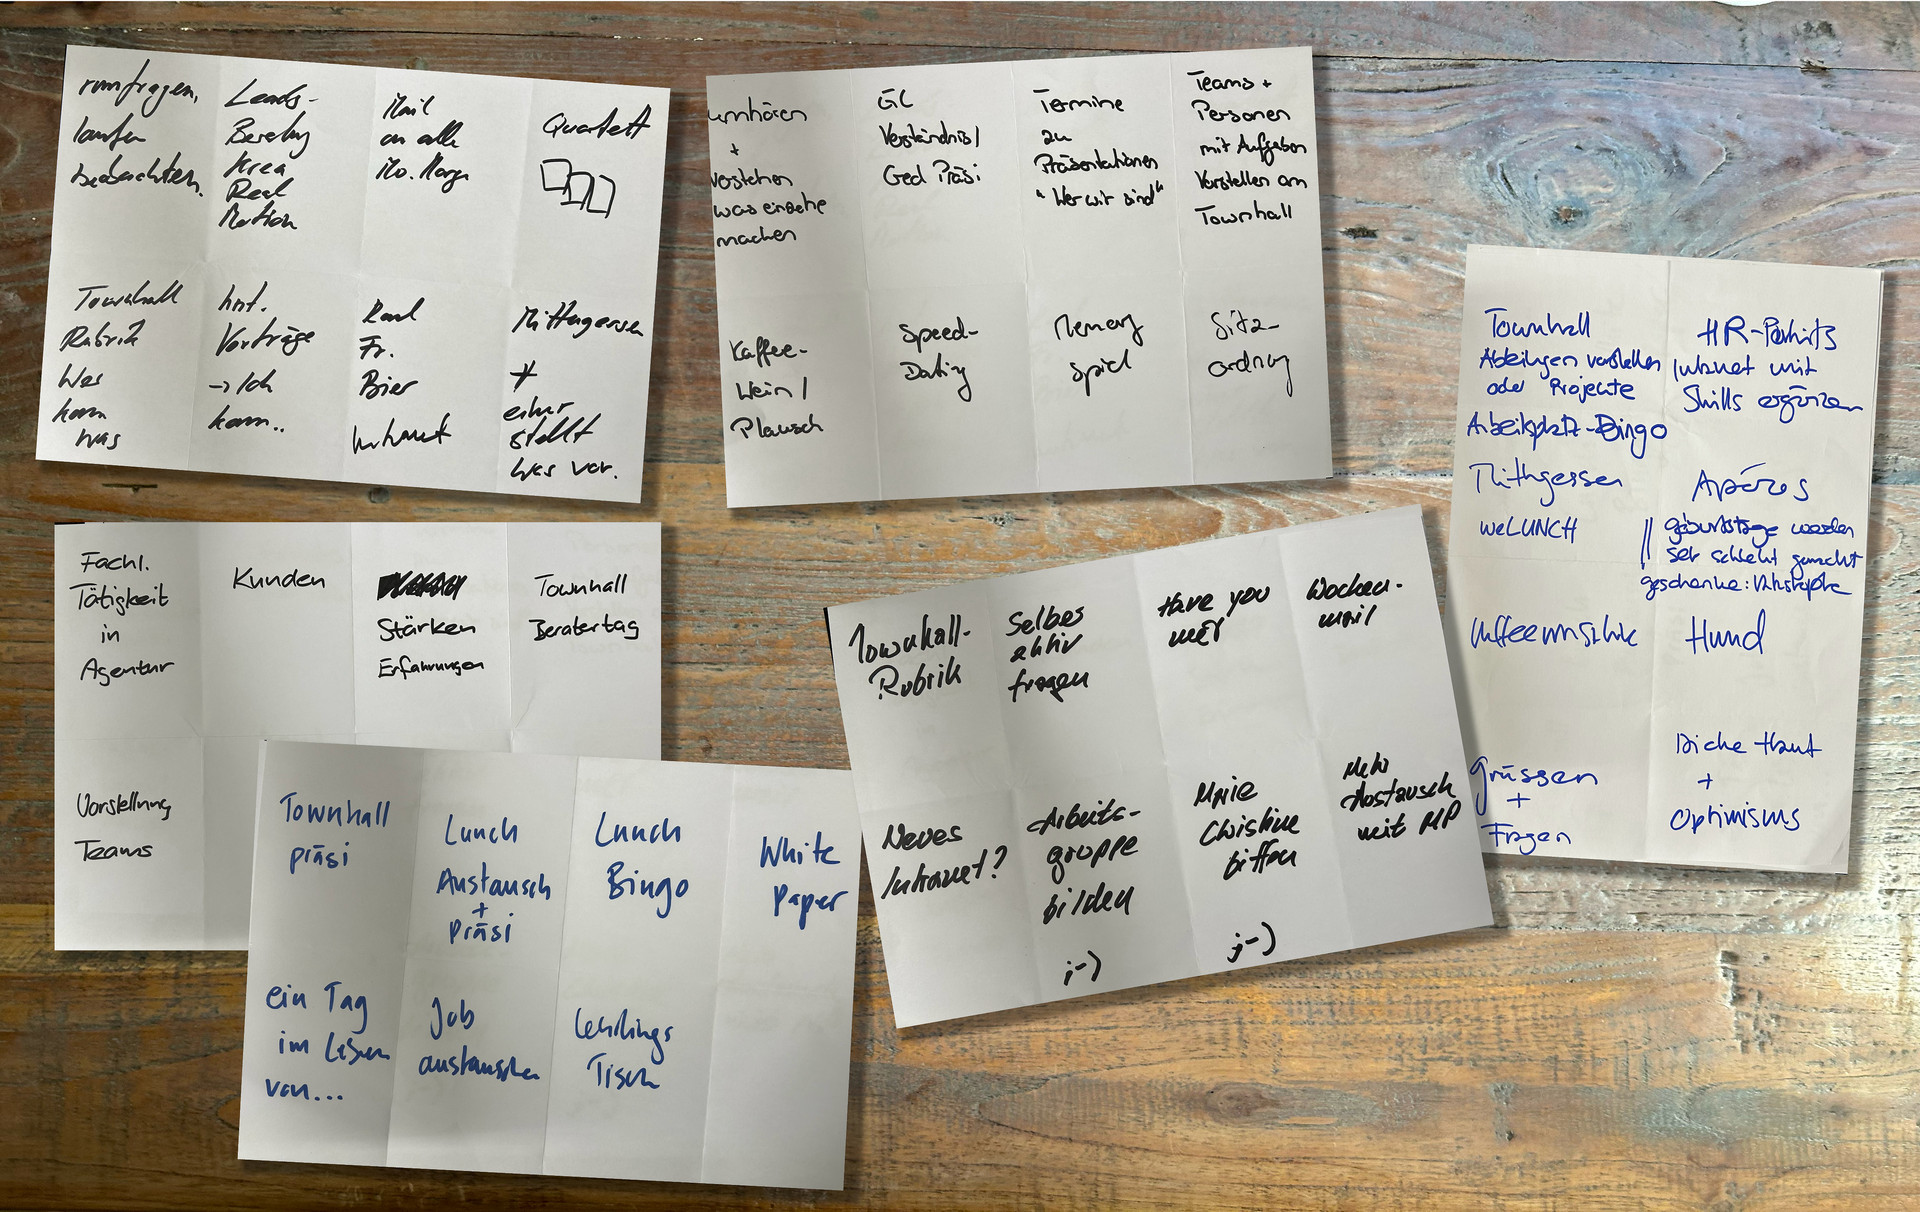 rumfragen,
laufen
beobachten.
Leads-
Beratung
Krea
Real
Motion
Mail
an alle
Mo. Morgen
Quartett
Townhall
Rubrik
Wer
kann
was
Int.
Vorträge
→ Ich
kann..
Fr.
Bier
Mittagessen
+
einer
stellt
was vor.
umhören
+
verstehen
was einzelne
machen
GL
Verständnis/
Ged Präsi
Termine
zu
Präsentationen
"Wer wir sind"
Teams +
Personen
mit Aufgaben
Vorstellen am
Townhall
Kaffee-
Wein /
Plausch
Speed-
Dating
Memory
spiel
Sitz-
ordnung
Townhall
Abteilungen vorstellen
oder Projekte
Arbeitsplatz-Bingo
Mittagessen
weLUNCH
Kaffeemaschine
Grüssen
+
Fragen
HR-Porträts
Intranet mit
Skills ergänzen
Apéros
geburtstage werden
sehr schlecht gemacht
geschenke: Katastrophe
Hund
Dicke Haut
+
Optimismus
Fachl.
Tätigkeit
in
Agentur
Kunden
Stärken
Erfahrungen
Townhall
Beratertag
Vorstellung
Teams
Townhall-
Rubrik
Selber
aktiv
fragen
Have you
met
Wochen-
mail
Neues
Intranet?
Arbeits-
gruppe
bilden
;-)
Marie
Christine
bitten
;-)
Mehr
Austausch
mit MP
Townhall
präsi
Lunch
Austausch
+
Präsi
Lunch
Bingo
White
Paper
ein Tag
im Leben
von...
Job
austauschen
Lehrlings
Tisch